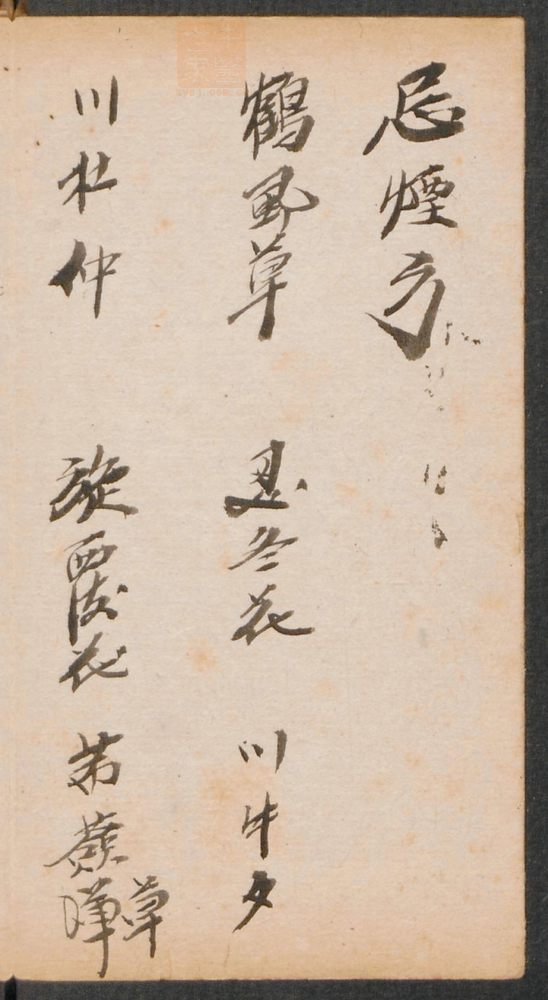 忌煙方
鶴風草 忍冬花 川牛夕
川杜仲 旋覆花